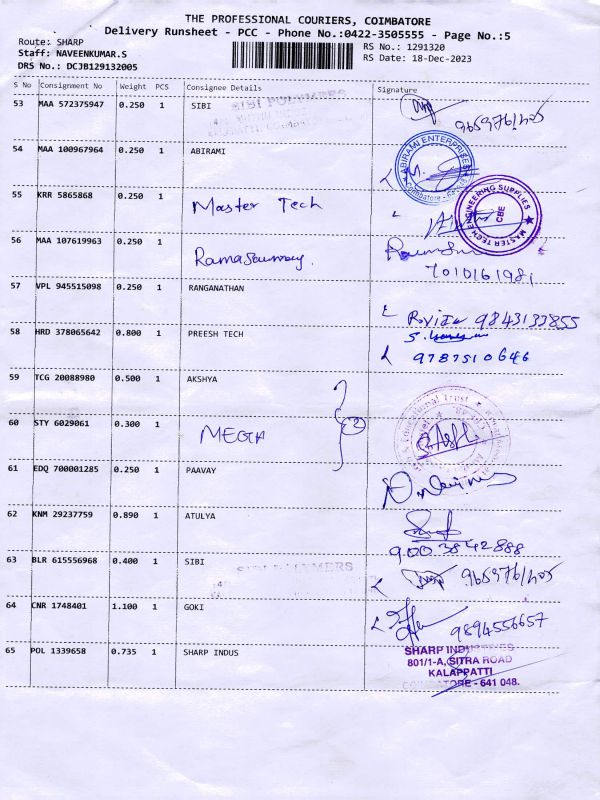 THE PROFESSIONAL COURIERS, COIMBATORE
Delivery Runsheet - PCC - Phone No.:0422-3505555 - Page No.:5
Route: SHARP
RS No.: 1291320
Staff: NAVEENKUMAR.S
RS Date: 18-Dec-2023
DRS No.: DCJB129132005
S No Consignment No Weight PCS Consignee Details Signature
53 MAA 572375947 0.250 1 SIBI
SIBI POLYMERS
54 MAA 100967964 0.250 1 ABIRAMI
ABIRAMI ENTERPRISES
55 KRR 5865868 0.250 1 Master Tech
MASTER TECH ENGINEERING SUPPLIES
CBE
56 MAA 107619963 0.250 1 Ramasamy
7010161981
57 VPL 945515098 0.250 1 RANGANATHAN
9843133855
58 HRD 378065642 0.800 1 PREESH TECH
9787510646
59 TCG 20088980 0.500 1 AKSHYA
60 STY 6029061 0.300 1 MEGA
2
Educational Trust
61 EDQ 700001285 0.250 1 PAAVAY
62 KNM 29237759 0.890 1 ATULYA
9003842888
63 BLR 615556968 0.400 1 SIBI
64 CNR 1748401 1.100 1 GOKI
9894556657
65 POL 1339658 0.735 1 SHARP INDUS
SHARP INDUSTRIES
801/1-A, SITRA ROAD
KALAPPATTI
COIMBATORE - 641 048.